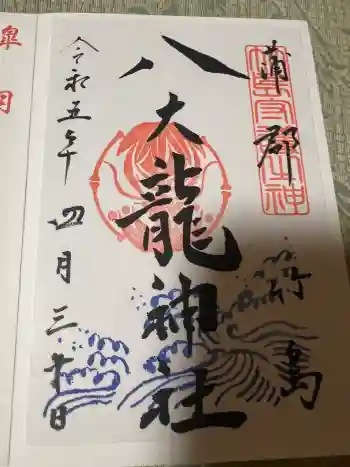 蒲郡
竹島
八大龍神社
令和五年四月三十日
皐月